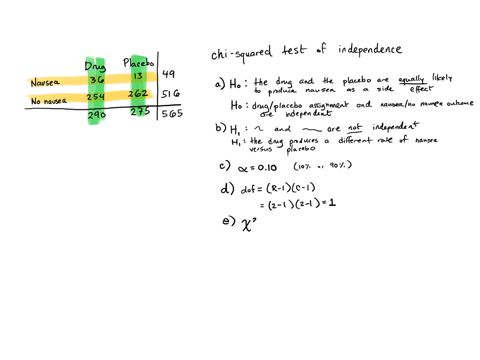 Drug Placebo
Nausea 36 13 49
No nausea 254 262 516
290 275 565
chi-squared test of independence
a) H₀: the drug and the placebo are equally likely
to produce nausea as a side effect
H₀: drug/placebo assignment and nausea/no nausea outcome
are independent
b) H₁: ~ and ~~ are not independent
H₁: the drug produces a different rate of nausea
versus placebo
c) α = 0.10 (10% or 90%)
d) dof = (R-1)(C-1)
= (2-1)(2-1) = 1
e) χ²